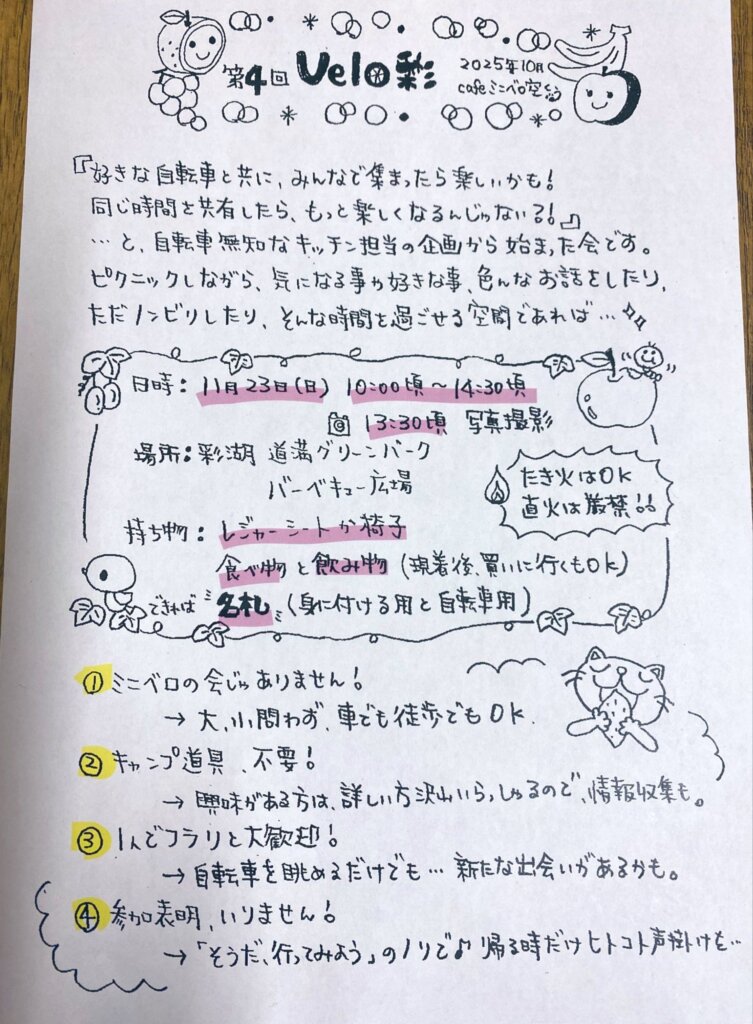 第4回 Velo彩
2025年10月
cafeミニベロ空
『好きな自転車と共に、みんなで集まったら楽しいかも!
同じ時間を共有したら、もっと楽しくなるんじゃない?!』
…と、自転車無知なキッチン担当の企画から始まった会です。
ピクニックしながら、気になる事や好きな事、色んなお話をしたり、
ただノンビリしたり、そんな時間を過ごせる空間であれば…
日時: 11月23日(日) 10:00頃〜14:30頃
13:30頃 写真撮影
場所:彩湖 道満グリーンパーク
バーベキュー広場
たき火はOK
直火は厳禁!!
持ち物: レジャーシートか椅子
食べ物と飲み物(現着後、買いに行くもOK)
できれば 名札 (身に付ける用と自転車用)
① ミニベロの会じゃありません!
→ 大、小問わず、車でも徒歩でもOK.
② キャンプ道具、不要!
→ 興味がある方は、詳しい方沢山いらっしゃるので、情報収集も。
③ 1人でフラリと大歓迎!
→ 自転車を眺めるだけでも… 新たな出会いがあるかも。
④ 参加表明、いりません!
→「そうだ、行ってみよう」のノリで♪ 帰る時だけヒトコト声掛けを…